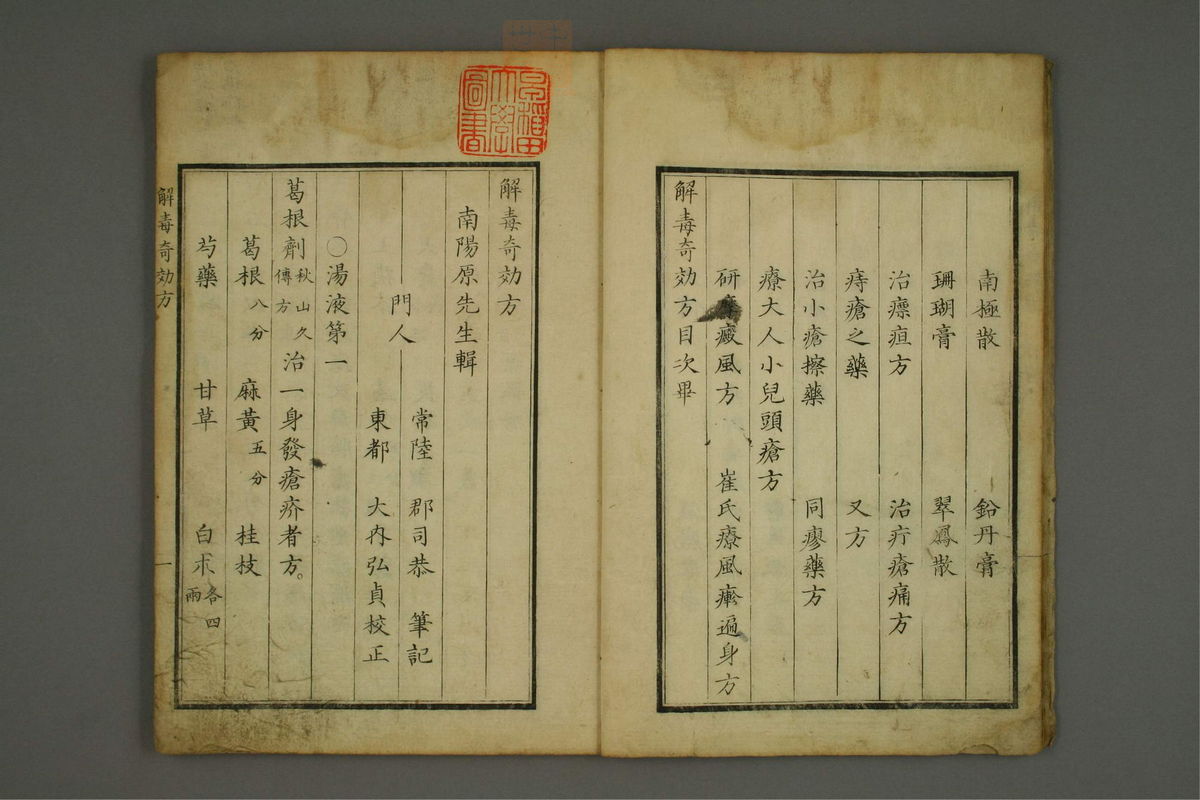 南極散　鉛丹膏
珊瑚膏　翠鳳散
治瘭疽方　治疔瘡痛方
痔瘡之藥　又方
治小瘡擦藥　同瘳藥方
療大人小兒頭瘡方
研 癜風方　崔氏療風 遍身方
解毒奇効方目次畢
早稲田大學圖書
解毒奇効方
南陽原先生輯
門人
常陸　郡司恭　筆記
東都　大內弘貞校正
〇湯液第一
葛根劑 秋山久傳方 治一身發瘡疥者方。
葛根八分　麻黃五分　桂枝
芍藥　甘草　白朮各四兩
解毒奇効方
一